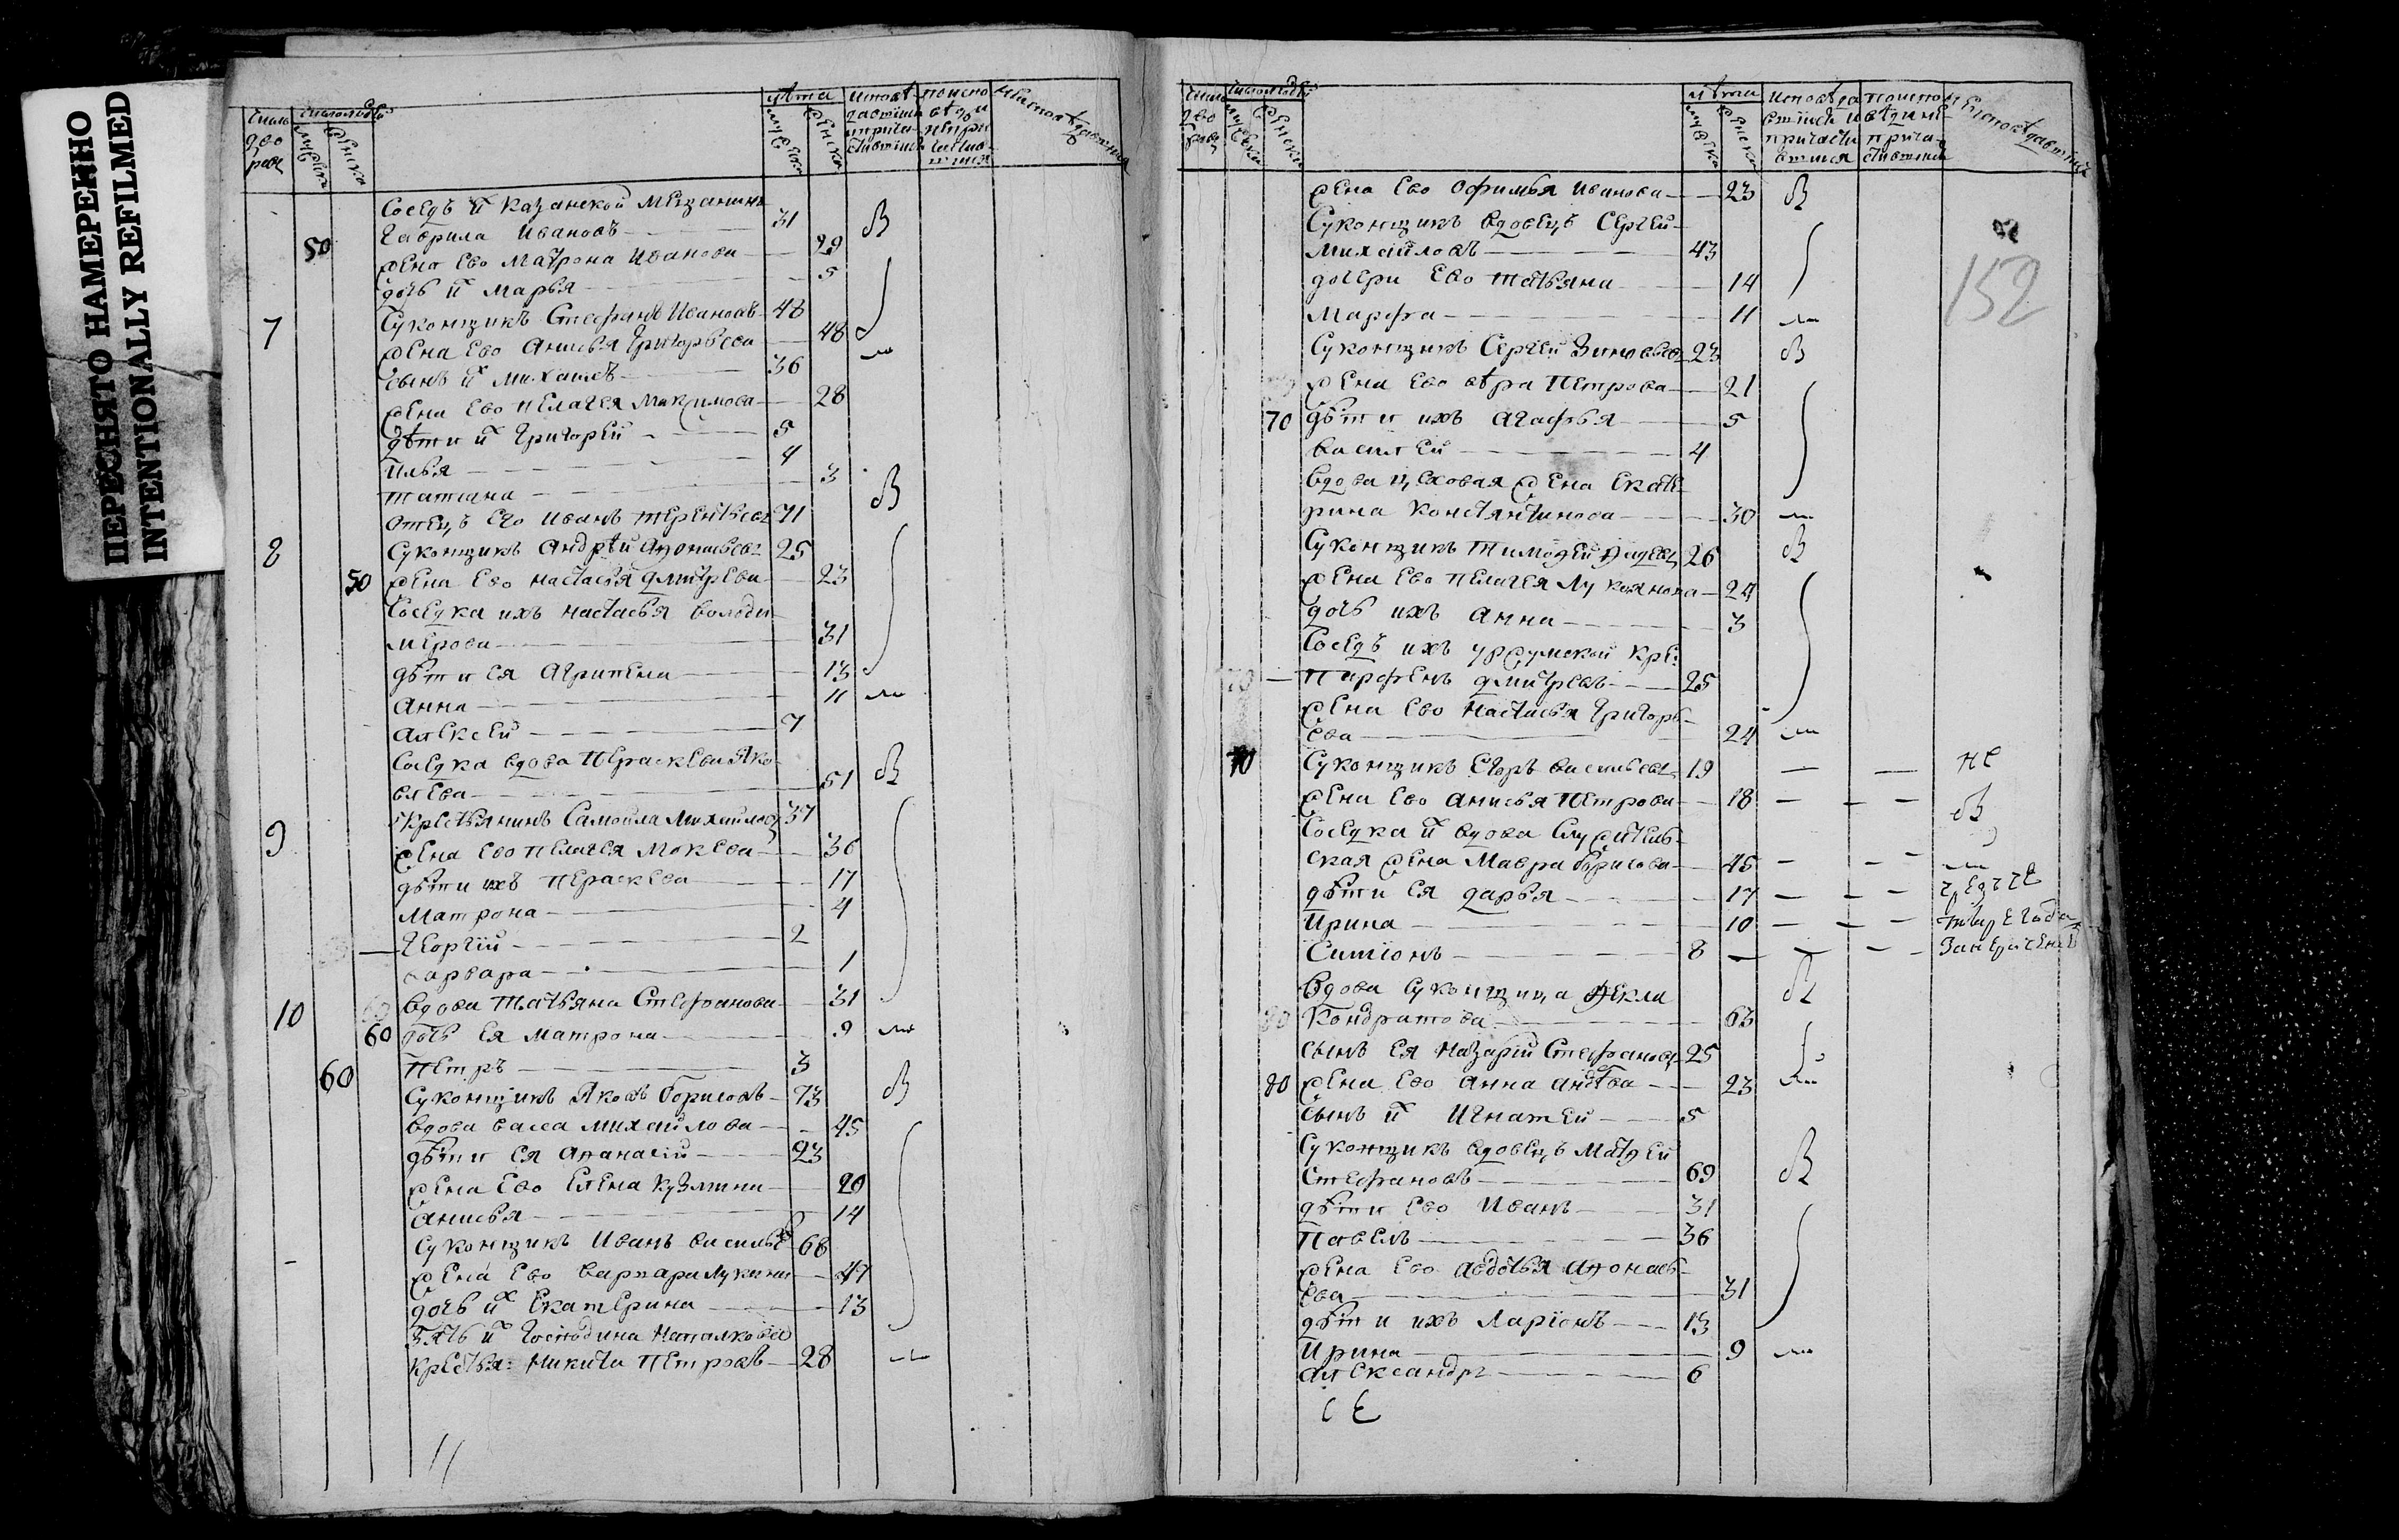 ПЕРЕСНЯТО НАМЕРЕННО
INTENTIONALLY REFILMED
число дво ров
число людей
мужска
женска
лѣта
мужска
женска
исповѣдавшіися и причастившіися
Соседъ их казанской мещанинъ
Гаврила Ивановъ 31 В
50 жена ево Матрона Иванова 29
дочь их Марья 5
7 Суконщикъ Стефанъ Ивановъ 48
жена ево Анисья Григорьева 48
сынъ их Михаилъ 36
жена ево Пелагея Максимова 28
дѣти их Григорей 5
Илья 4
Татиана 3
отецъ его Иванъ Терентьевъ 71 В
8 Суконщикъ Андрей Афонасьевъ 25
50 жена ево Настасья Дмитрева 23
Соседка ихъ Настасья Володи
мерова 31
дѣти ея Агрипена 13
Анна 11
Алексей 7
Соседка вдова Пераскева Яко
влева 51 В
9 крестьянинъ Самойла Михайловъ 37
жена ево Пелагея Мокева 36
дѣти ихъ Пераскева 17
Матрона 4
Георгій 2
Варвара 1
10 вдова Татьяна Стефанова 31
60 дочь ея Матрона 9
60 Петръ 3
Суконщикъ Яковъ Борисовъ 73 В
вдова Васса Михайлова 45
дѣти ея Афанасій 23
жена ево Елена Кузмина 20
Анисья 14
Суконщикъ Иванъ Василье 68
жена ево Варвара Лукина 47
дочь их Екатерина 13
зять их Господина
крестья: Никита Петровъ 28
11
число дво ровъ
число людей
мужска
женска
лѣта
мужска
женска
152
жена ево Офимья Иванова 23 В
Суконщикъ вдовецъ Сергей
Михайловъ 43
дочери ево Татьяна 14
Марфа 11
Суконщикъ Сергей Зиновьевъ 23 В
жена ево Вѣра Петрова 21
70 дѣти ихъ Агафья 5
Василей 4
вдова цеховая жена Екате
рина Константинова 30
Суконщикъ Тимофей 26 В
жена ево Пелагея Лукоянова 24
дочь ихъ Анна 3
Соседъ ихъ уржумской кре:
Парфенъ Дмитревъ 25
жена ево Настасья Григорь
ева 24
70 Суконщикъ Егоръ Васильевъ 19 не
жена ево Анисья Петрова 18 В
Соседка их вдова служитель
ская жена Мавра Борисова 45
дѣти ея Дарья 17
Ирина 10
Симіонъ 8
Вдова суконщица Фекла
Кондратова 63 В
сынъ ея Назарій Стефановъ 25
80 жена ево Анна 23
сынъ их Игнатей 5
Суконщикъ вдовецъ Матфей
Стефановъ 69 В
дѣти ево Иванъ 31
Павелъ 36
жена ево Авдотья Афонась
ева 31
дѣти ихъ Ларіонъ 13
Ирина 9
Александръ 6